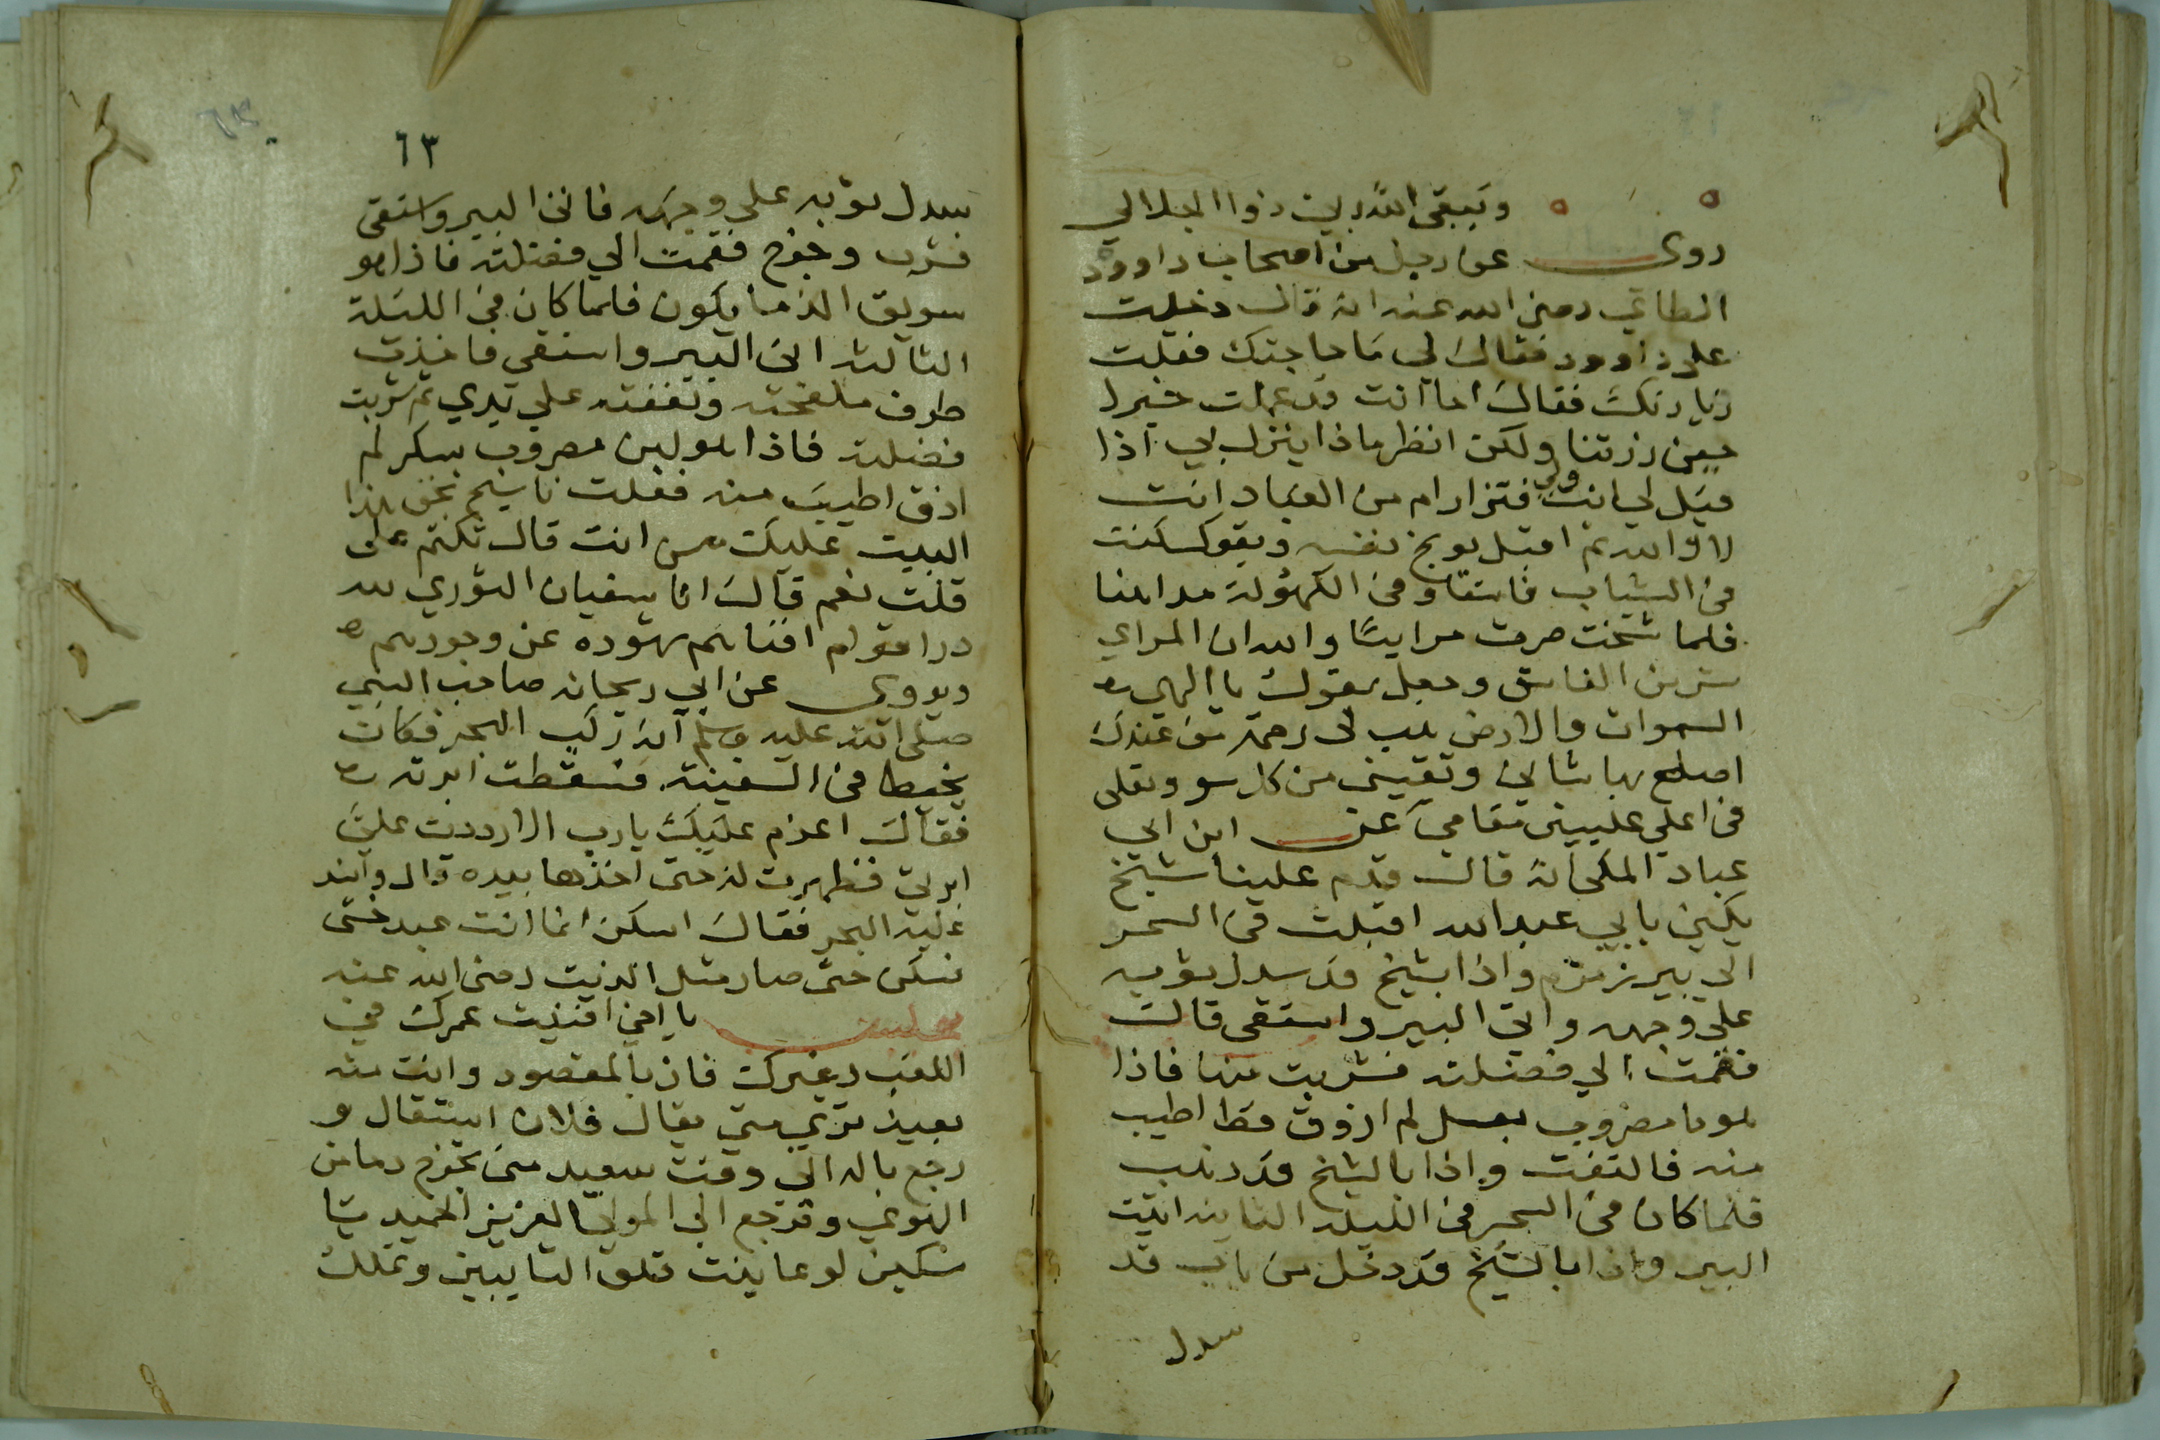 وتبقى الله ربي ذوا الجلالي
روى عن رجل من اصحاب داوود
الطاءي رضي الله عنه انه قال دخلت
على داوود فقال لي ما حاجتك فقلت
زيارتك فقال اما انت قد عملت خيرا
حين زرتنا ولكن انظر ماذا ينزل بي اذا
قيل لي انت فتزار ام من العباد انت
لا والله ثم اقبل يوبخ نفسه ويقول كنت
في الشباب فاسقا وفي الكهولة مداهنا
فلما شخت صرت مرايئا والله ان المراي
شر من الفاسق وجعل يقول يا اله
السموات والارض هب لي رحمة من عندك
اصلح بها شاني وتقيني من كل سو وتعلى
في اعلي عليين مقامي عن ابن ابي
عباد المكي انه قال قدم علينا شيخ
يكنى بابي عبد الله اقبلت في السحر
الي بير زمزم واذا بشيخ قد سدل ثوبه
على وجهه واتى البير واستقى قال
فقمت الي فضلته فشربت منها فاذا
هو ما مضروب بعسل لم اذوق قط اطيب
منه فالتفت واذا بالشيخ قد ذهب
فلما كان في السحر في الليلة الثانية اتيت
البير واذا بالشيخ قد دخل من باب قد
سدل
٦٣
سدل ثوبه على وجهه فاتى البير واستقى
فشرب وخرج فقمت الي فضلته فاذا هو
سويق الذ ما يكون فلما كان في الليلة
الثالثة اتى البير واستقى فاخذت
طرف ملفحته ولففته علي يدي ثم شربت
فضلته فاذا هو لبن مضروب بسكر لم
اذق اطيب منه فقلت يا شيخ بحق هذا
البيت عليك من انت قال تكتم على
قلت نعم قال انا سفيان الثوري لله
در اقوام افناهم شهوده عن وجودهم
ويروى عن ابي ريحانه صاحب النبي
صلى الله عليه وسلم انه ركب البحر فكان
يخيط في السفينة فسقطت ابرته
فقال اعزم عليك يارب الا رددت علي
ابرتي فظهرت له حتى اخذها بيده قال واشتد
عليه البحر فقال اسكن انما انت عبد حبشى
فسكن حتى صار مثل الزيت رضي الله عنه
يا اخي افنيت عمرك في
اللعب وغيرك فاز بالمقصود وانت منه
بعيد تري متي يقال فلان استقال و
رجع ياله الي وقت سعيد متى تخرج من
الهوى وترجع الي المولي العزيز الحميد يا
مسكين لو عاينت قلق التايبين وتملك